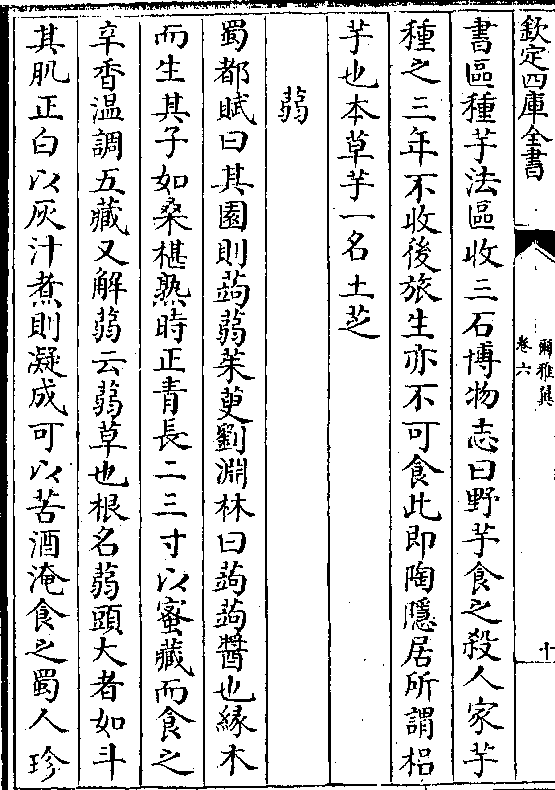 欽定四庫全書
爾雅翼
卷六
十
書區種芋法區收三石博物志曰野芋食之殺人家芋
種之三年不收後旅生亦不可食此即陶隱居所謂梠
芋也本草芋一名土芝
蒻
蜀都賦曰其園則蒟蒻茱萸劉淵林曰蒟蒟醬也緣木
而生其子如桑椹熟時正青長二三寸以蜜藏而食之
辛香温調五藏又解蒻云蒻草也根名蒻頭大者如斗
其肌正白以灰汁煮則凝成可以苦酒淹食之蜀人珍